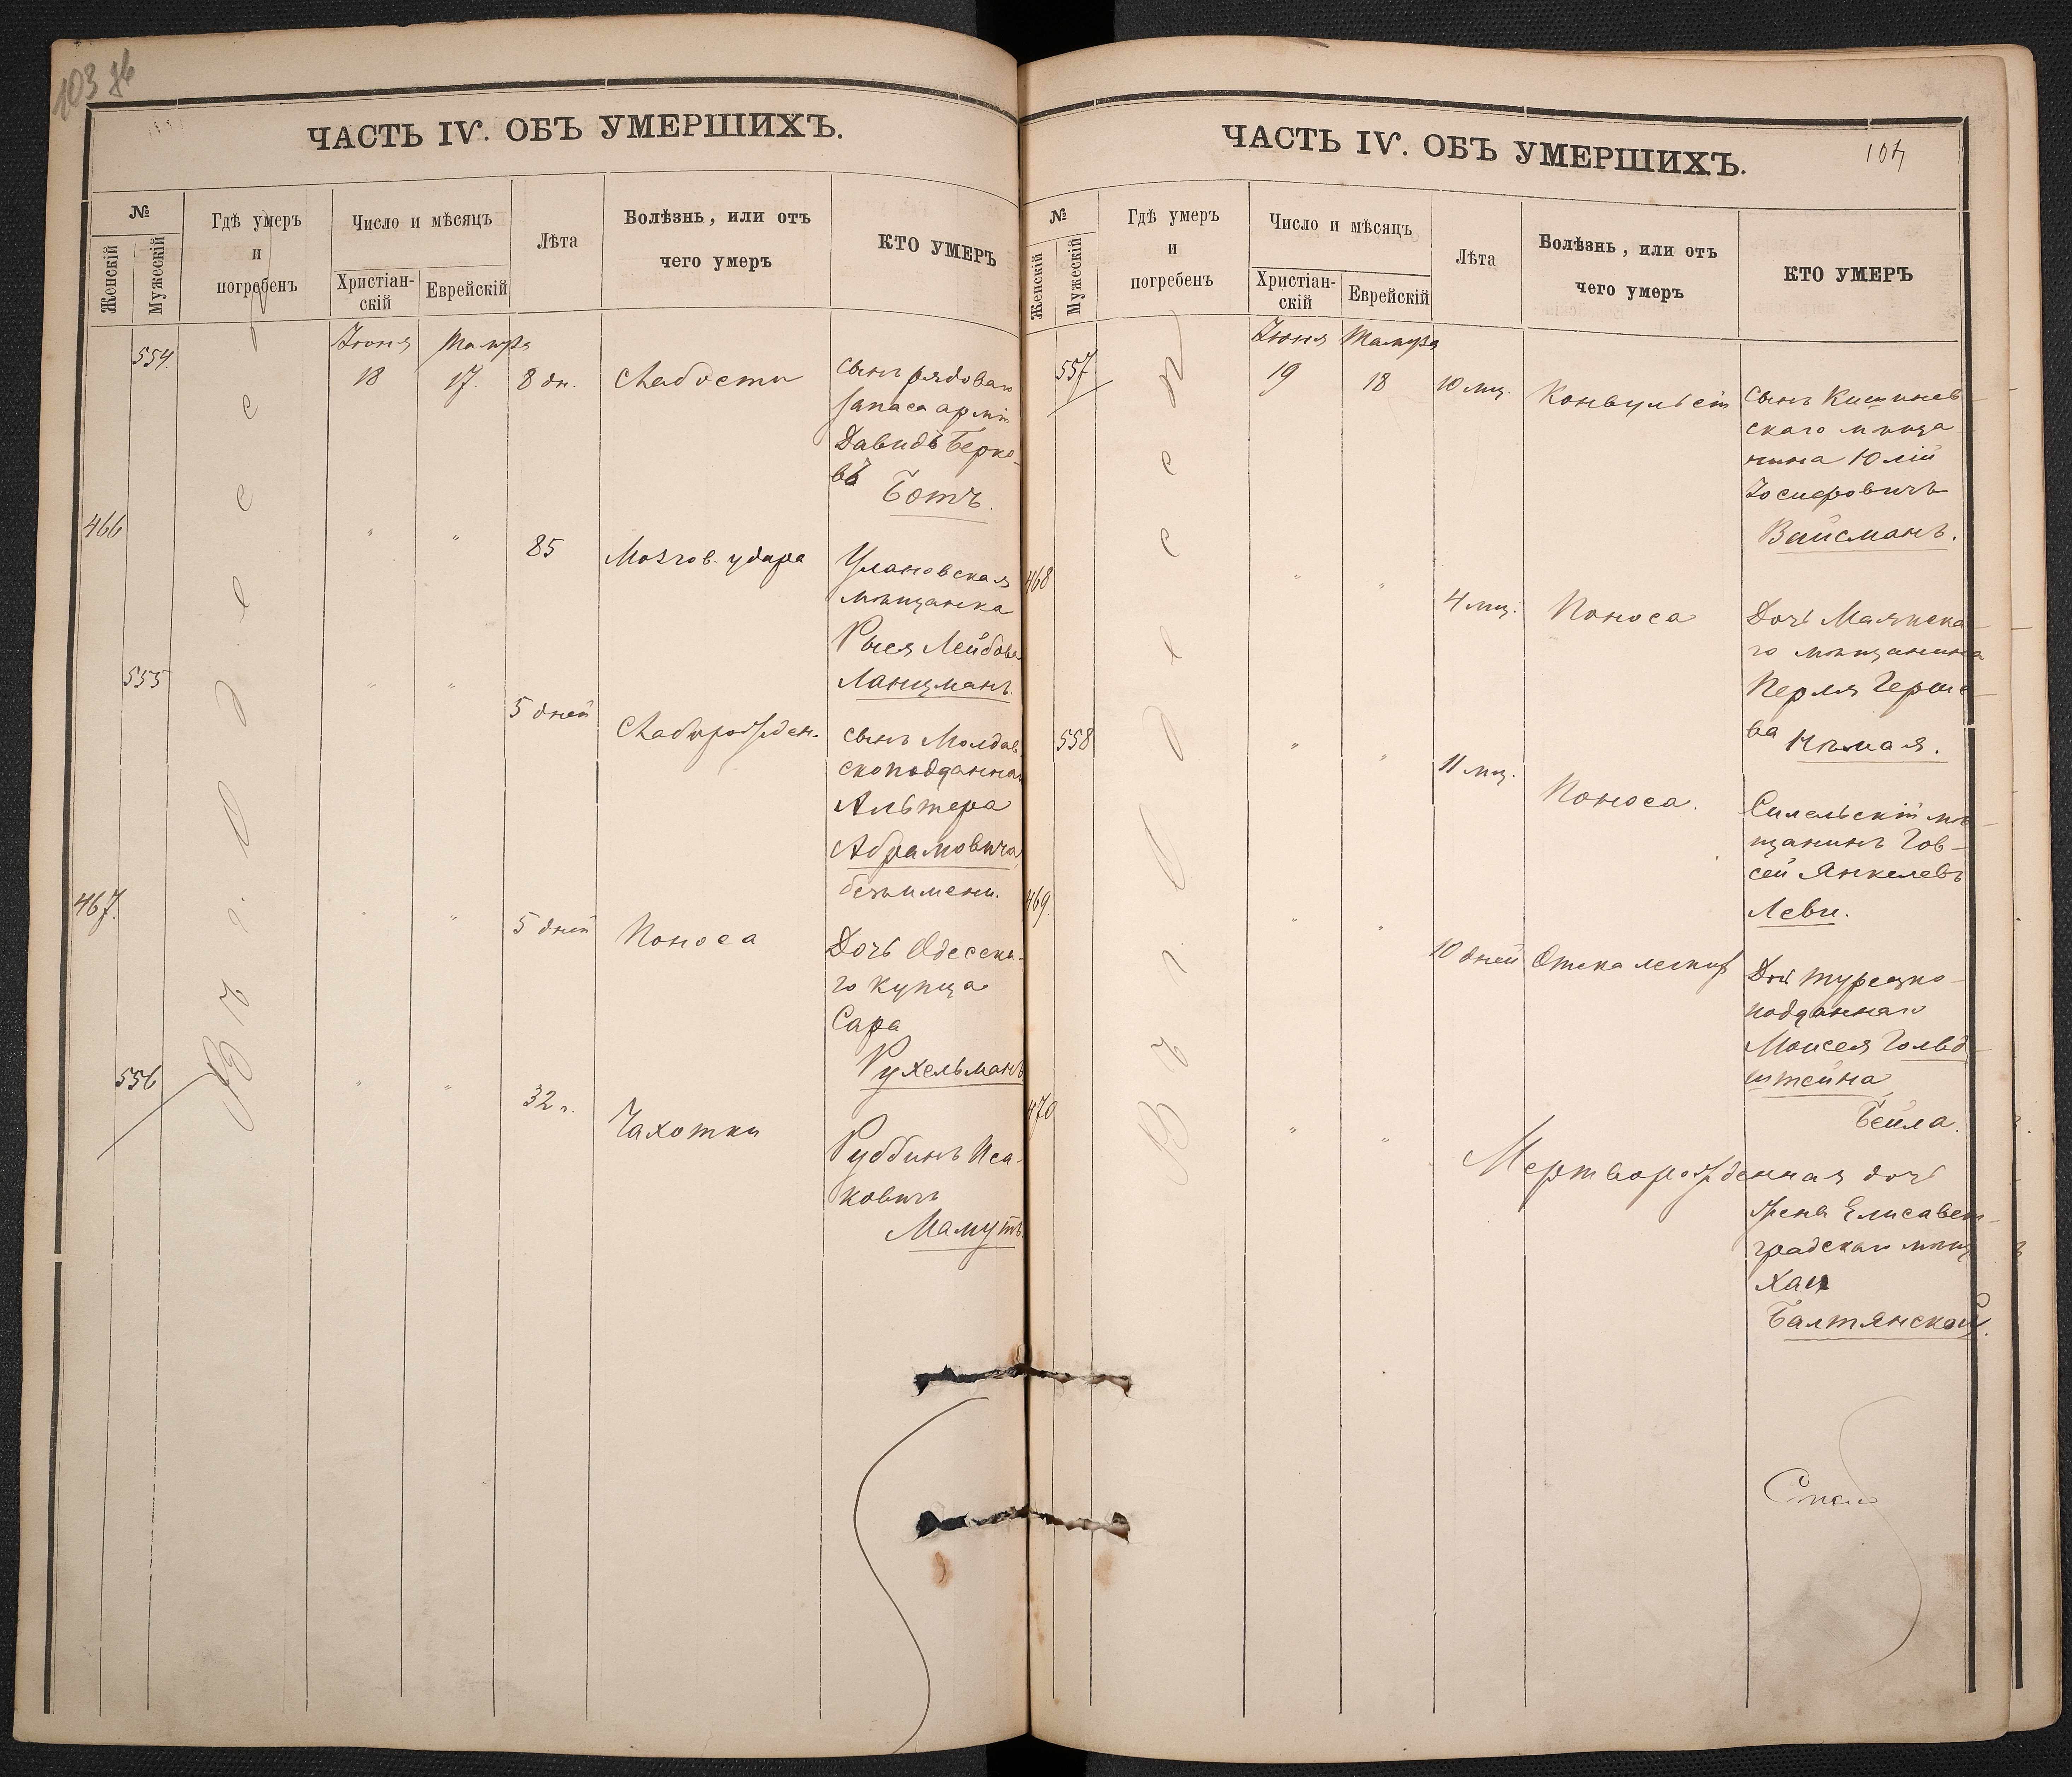 103 зв
ЧАСТЬ IV. ОБЪ УМЕРШИХЪ.
№
Женскій
Мужескій
Гдѣ умеръ
и
погребенъ
Число и мѣсяцъ
Христіан-
скій
Еврейскій
Лѣта
Болѣзнь, или отъ
чего умеръ
КТО УМЕРЪ
Въ г. Одессѣ
554.
Іюня
Тамуза
18
17.
8 дн.
Слабости
сынъ рядоваго
запаса арміи
Давидъ Берко-
въ
Ботъ.
466
"
"
85
Мозгов. удара
Улановская
мѣщанка
Рыся Лейбова
Ланцманъ.
555
"
"
5 дней
Слаборожден.
сынъ Молдав
скоподданнаго
Альтера
Абрамовича,
безъимени.
467.
"
5 дней
Поноса
Дочь Одесска-
го купца
Сара
Рухельманъ
556
"
"
32 г.
Чахотки
Руббинъ Иса-
ковичъ
Мамутъ.
ЧАСТЬ IV. ОБЪ УМЕРШИХЪ.
104
№
Женскій
Мужескій
Гдѣ умеръ
и
погребенъ
Число и мѣсяцъ
Христіан-
скій
Еврейскій
Лѣта
Болѣзнь, или отъ
чего умеръ
КТО УМЕРЪ
Въ г. Одессѣ
557
Іюня
Тамуза
19
18
10 мц.
Конвульсіи
сынъ Кишинев
скаго мѣща
нина Юлій
Іосифовичъ
Вайсманъ.
468
"
"
4 мц.
Поноса
Дочь Маякска-
го мѣщанина
Перля Герше-
ва Нѣмая.
558
"
"
11 мц.
Поноса.
мѣ
щанинъ Гов-
сей Янкелевъ
Леви.
469.
"
"
10 дней
Отека легкихъ
Дочь турецко-
подданнаго
Моисея Гольд-
штейна
Бейла.
470
"
"
Мертворожденная дочь
жены Елисавет-
градскаго мѣщ
Хаи
Балтянской.